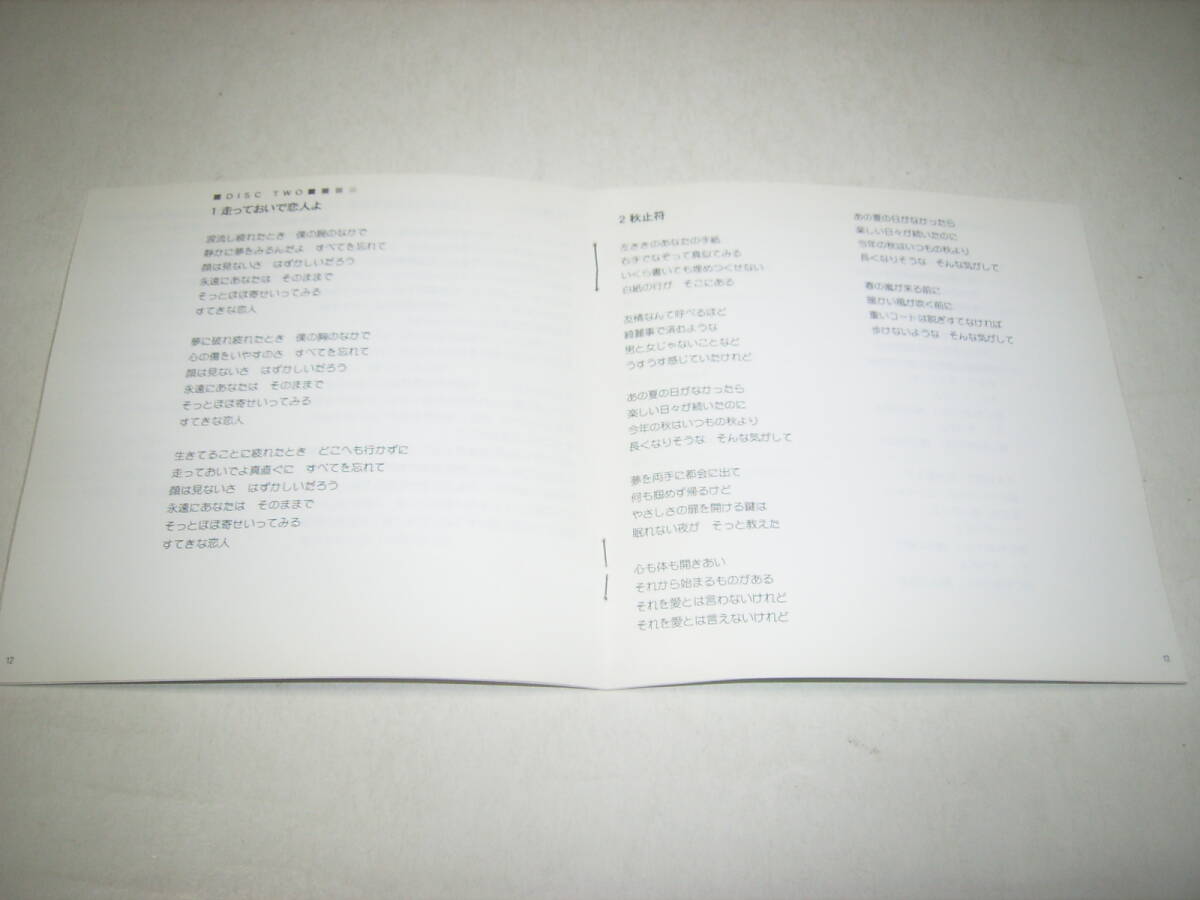 ■DISC TWO■■■■
1 走っておいで恋人よ
涙流し疲れたとき 僕の胸のなかで
静かに夢をみるんだよ すべてを忘れて
顔は見ないさ はずかしいだろう
永遠にあなたは そのままで
そっとほほ寄せいってみる
すてきな恋人
夢に破れ疲れたとき 僕の胸のなかで
心の傷をいやすのさ すべてを忘れて
顔は見ないさ はずかしいだろう
永遠にあなたは そのままで
そっとほほ寄せいってみる
すてきな恋人
生きてることに疲れたとき どこへも行かずに
走っておいでよ真直ぐに すべてを忘れて
顔は見ないさ はずかしいだろう
永遠にあなたは そのままで
そっとほほ寄せいってみる
すてきな恋人
12
2 秋止符
左ききのあなたの手紙
右手でなぞって真似てみる
いくら書いても埋めつくせない
白紙の行が そこにある
友情なんて呼べるほど
綺麗事で済むような
男と女じゃないことなど
うすうす感じていたけれど
あの夏の日がなかったら
楽しい日々が続いたのに
今年の秋はいつもの秋より
長くなりそうな そんな気がして
夢を両手に都会に出て
何も掴めず帰るけど
やさしさの扉を開ける鍵は
眠れない夜が そっと教えた
心も体も開きあい
それから始まるものがある
それを愛とは言わないけれど
それを愛とは言えないけれど
あの夏の日がなかったら
楽しい日々が続いたのに
今年の秋はいつもの秋より
長くなりそうな そんな気がして
春の嵐が来る前に
暖かい風が吹く前に
重いコートは脱ぎすてなければ
歩けないような そんな気がして
13